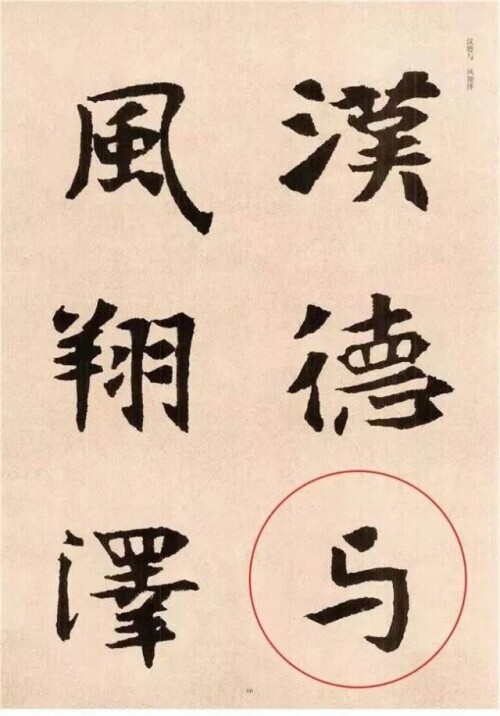 汉德与 风翔泽
漢德与
風翔澤